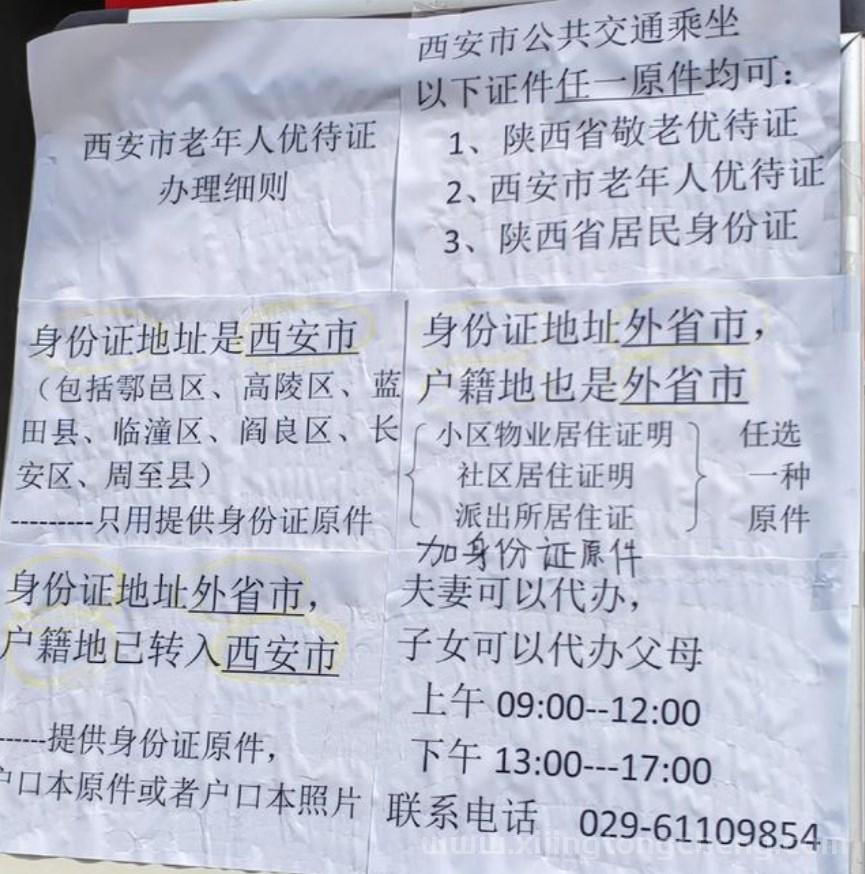 西安市老年人优待证
办理细则
西安市公共交通乘坐
以下证件任一原件均可：
1、陕西省敬老优待证
2、西安市老年人优待证
3、陕西省居民身份证
身份证地址是西安市
（包括鄠邑区、高陵区、蓝
田县、临潼区、阎良区、长
安区、周至县）
---------只用提供身份证原件
身份证地址外省市，
户籍地也是外省市
小区物业居住证明
社区居住证明
派出所居住证
任选
一种
原件
加身份证原件
身份证地址外省市，
户籍地已转入西安市
------提供身份证原件，
户口本原件或者户口本照片
夫妻可以代办，
子女可以代办父母
上午 09:00--12:00
下午 13:00---17:00
联系电话 029-61109854